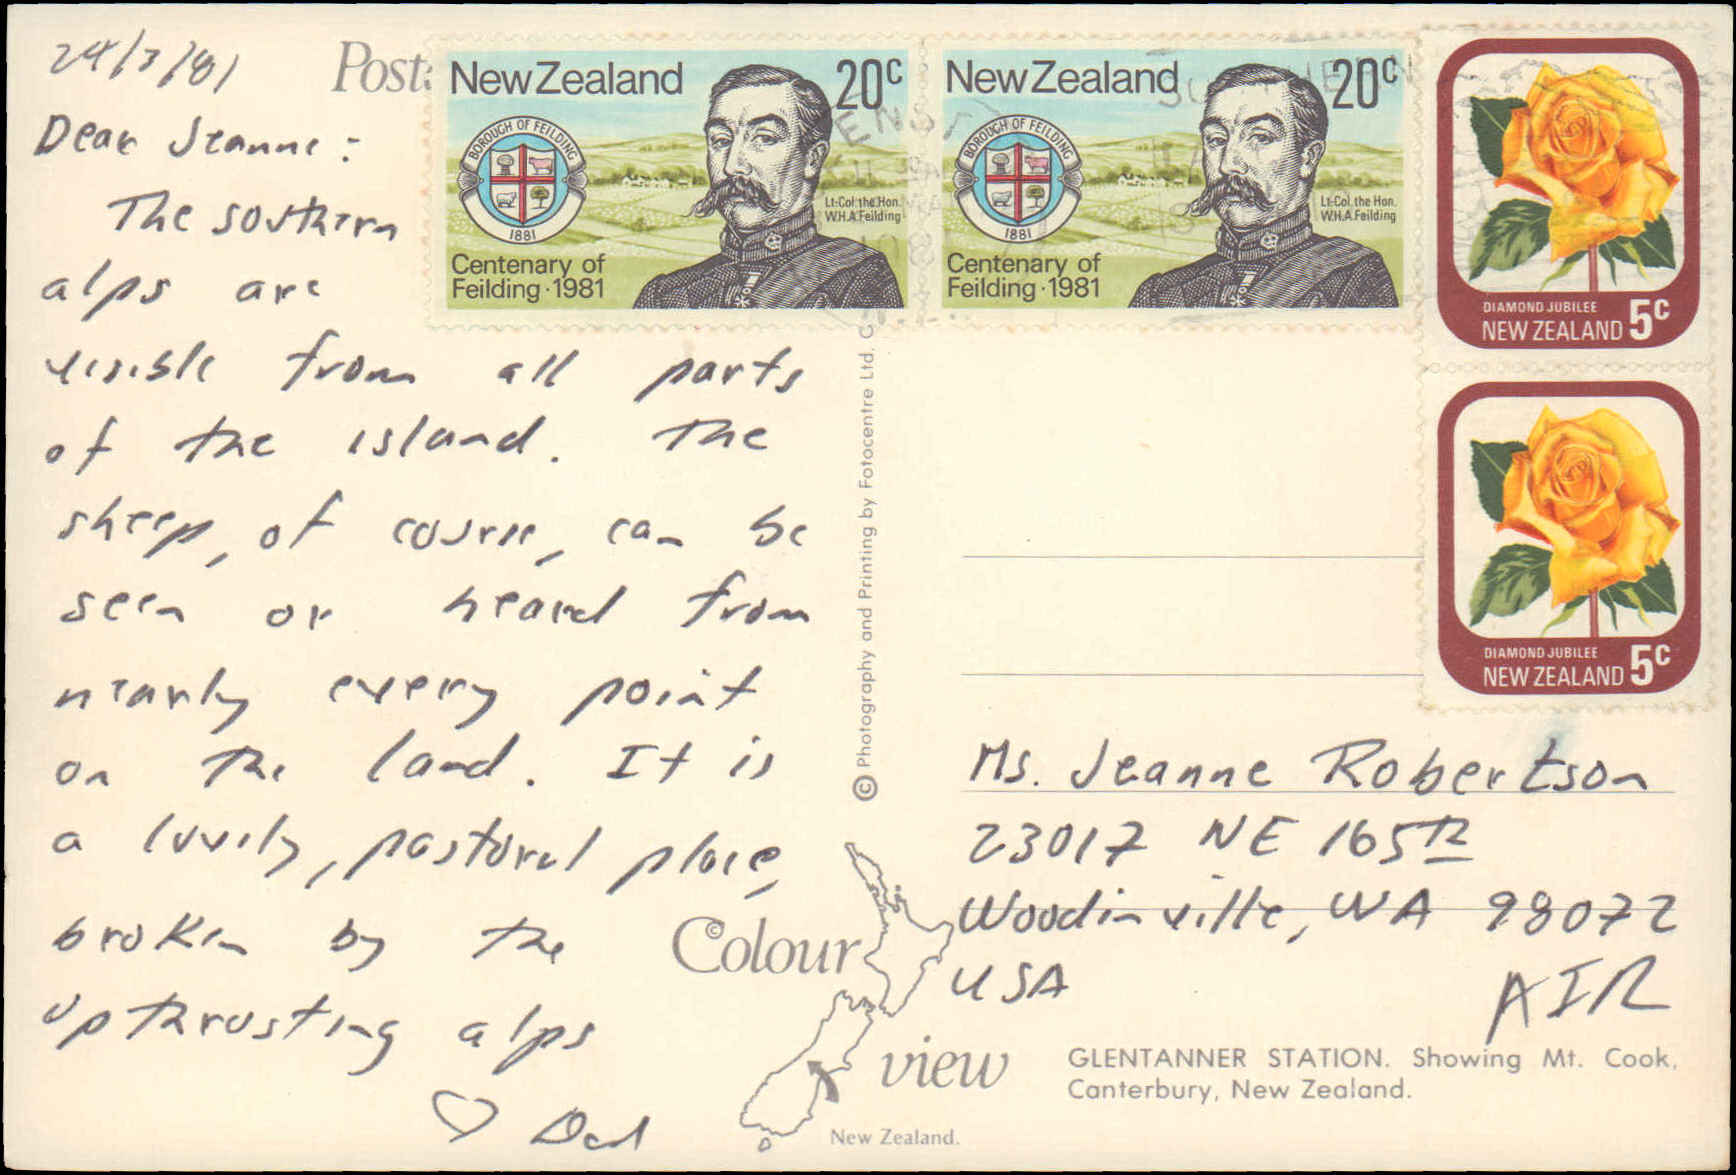 24/3/81
Post
Dear Jeanne:
The southern
alps are
visible from all parts
of the island. The
sheep, of course, can be
seen or heard from
nearly every point
on the land. It is
a lovely, pastoral place,
broken by the
upthrusting alps
♡ Dad
New Zealand 20c
BOROUGH OF FEILDING
1881
Lt-Col. the Hon.
W.H.A. Feilding
Centenary of
Feilding · 1981
New Zealand 20c
BOROUGH OF FEILDING
1881
Lt-Col. the Hon.
W.H.A. Feilding
Centenary of
Feilding · 1981
DIAMOND JUBILEE
NEW ZEALAND 5c
DIAMOND JUBILEE
NEW ZEALAND 5c
© Photography and Printing by Fotocentre Ltd.
Ms. Jeanne Robertson
23017 NE 165th
Woodinville, WA 98072
USA
AIR
Colour©
view
New Zealand.
GLENTANNER STATION. Showing Mt. Cook,
Canterbury, New Zealand.